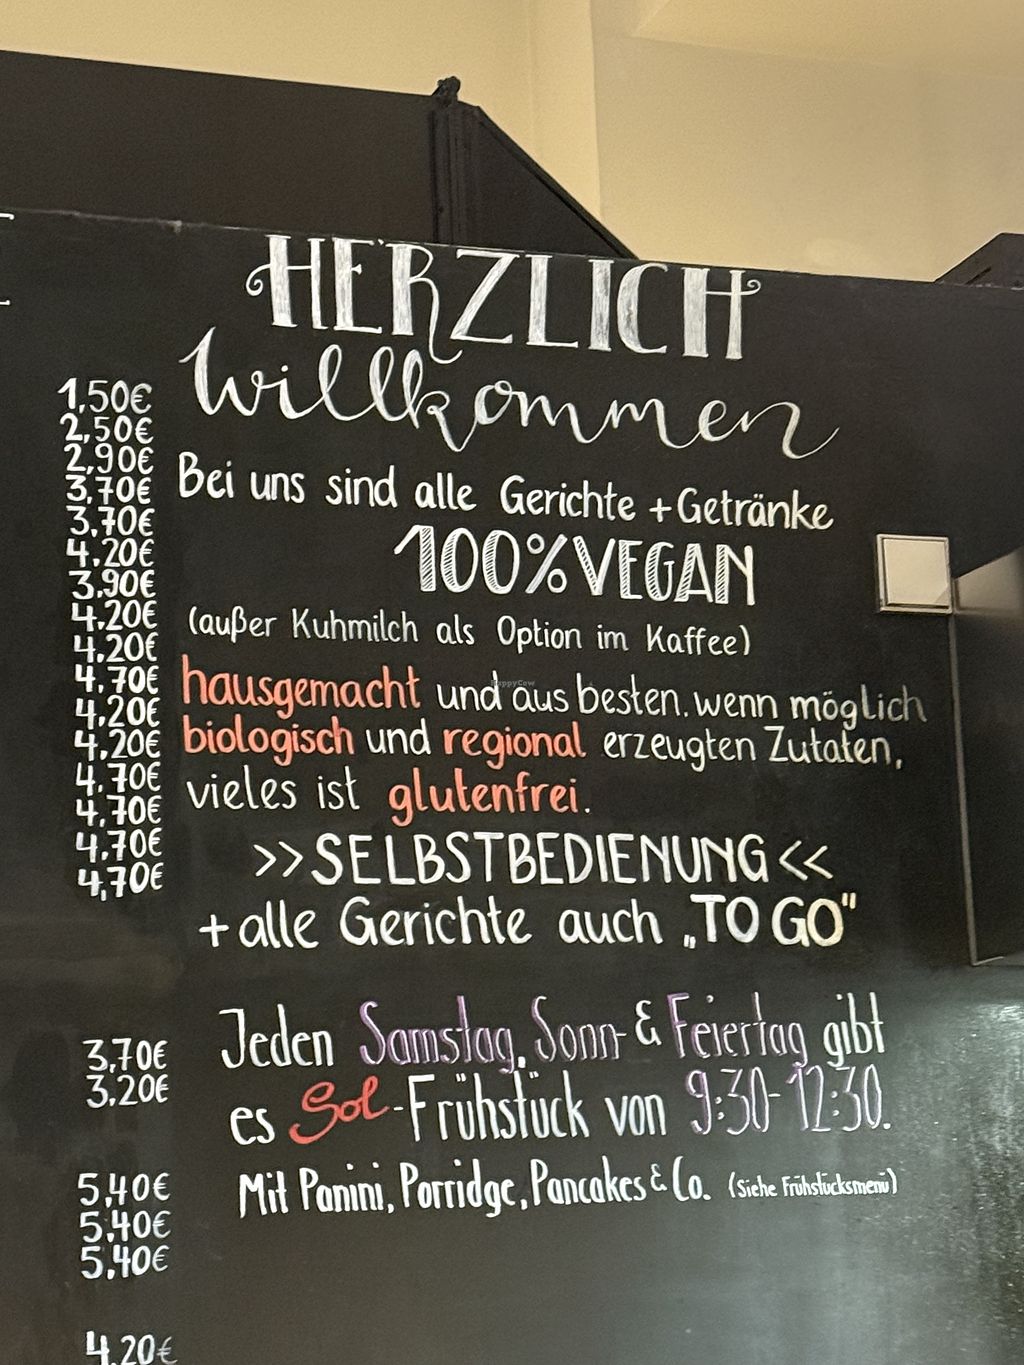 HERZLICH
willkommen
1,50€
2,50€
2,90€
3,70€
3,70€
4,20€
3,90€
4,20€
4,20€
4,70€
4,20€
4,20€
4,70€
4,70€
4,70€
4,70€
Bei uns sind alle Gerichte + Getränke
100% VEGAN
(außer Kuhmilch als Option im Kaffee)
hausgemacht und aus besten, wenn möglich
biologisch und regional erzeugten Zutaten,
vieles ist glutenfrei.
>> SELBSTBEDIENUNG <<
+ alle Gerichte auch „TO GO"
3,70€
3,20€
Jeden Samstag, Sonn- & Feiertag gibt
es Sol-Frühstück von 9:30-12:30.
Mit Panini, Porridge, Pancakes & Co. (Siehe Frühstücksmenü)
5,40€
5,40€
5,40€
4,20€
HappyCow